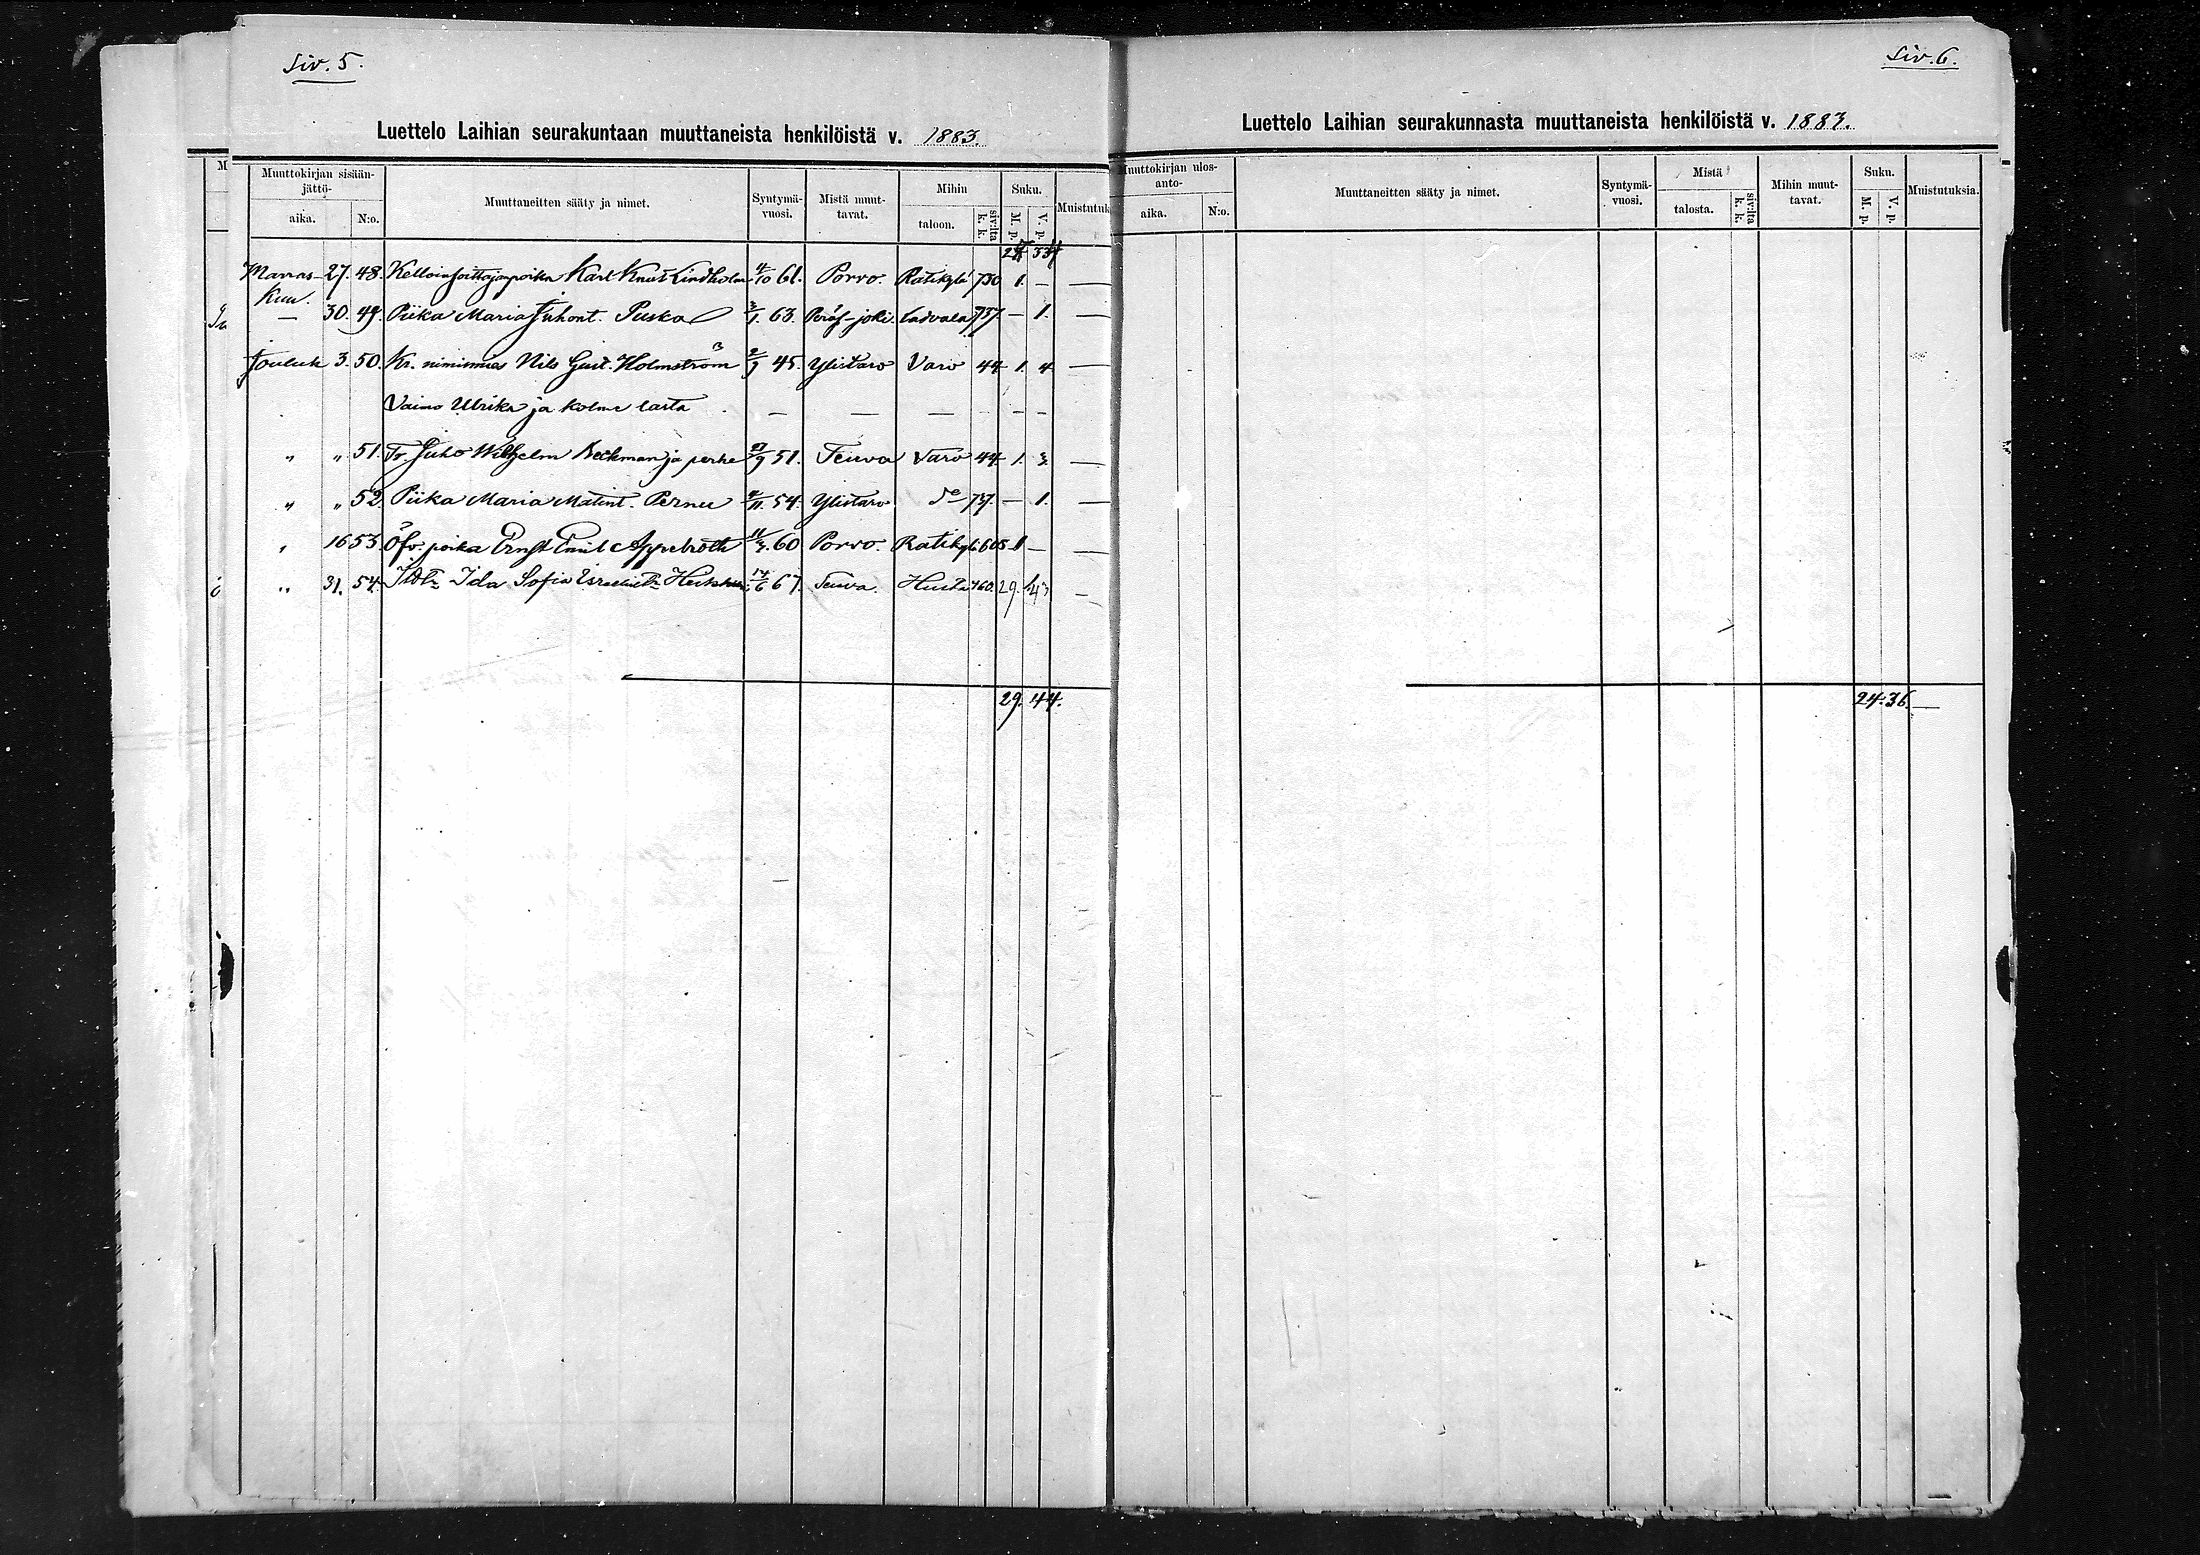 Siv. 5.
Luettelo Laihian seurakuntaan muuttaneista henkilöistä v. 1883.
Muuttokirjan sisään-jättö- aika. N:o. Muuttaneitten sääty ja nimet. Syntymä-vuosi. Mistä muut-tavat. Mihin taloon. k. k. sivulta Suku. M. p. V. p. Muistutuk
Marras- 27. 48. Karl Knut Lindholm 4/10 61. Porvo. Ratikylä 730 1. — —
Kuu.
— 30. 49. Piika Maria Juhont. Puska 3/1. 63. Peräs-joki. Ladvala 737 — 1. —
Jouluk 3. 50. Kr. nimimies Nils Gust. Holmström 2/9 45. Ylistaro Varo 44 1. 4 —
Vaimo Ulrika ja kolme lasta — — — — —
„ „ 51. Tr. Juho Wilhelm Beckman ja perhe 27/9 51. Teuva Varo 44. 1. 3. —
„ „ 52. Piika Maria Matint. Pernu 9/11. 54. Ylistaro de 737. — 1. —
„ 16 53. Öfv. poika Ernst Emil Appelroth 11/3. 60 Porvo. Ratikyl. 605 1 —
„ 31. 54. Ida Sofia 14/6 67. Teuva. 160. 29. —
29. 44.
Siv. 6.
Luettelo Laihian seurakunnasta muuttaneista henkilöistä v. 1883.
Muuttokirjan ulos-anto- aika. N:o. Muuttaneitten sääty ja nimet. Syntymä-vuosi. Mistä talosta. k. k. sivulta Mihin muut-tavat. Suku. M. p. V. p. Muistutuksia.
24. 36. —